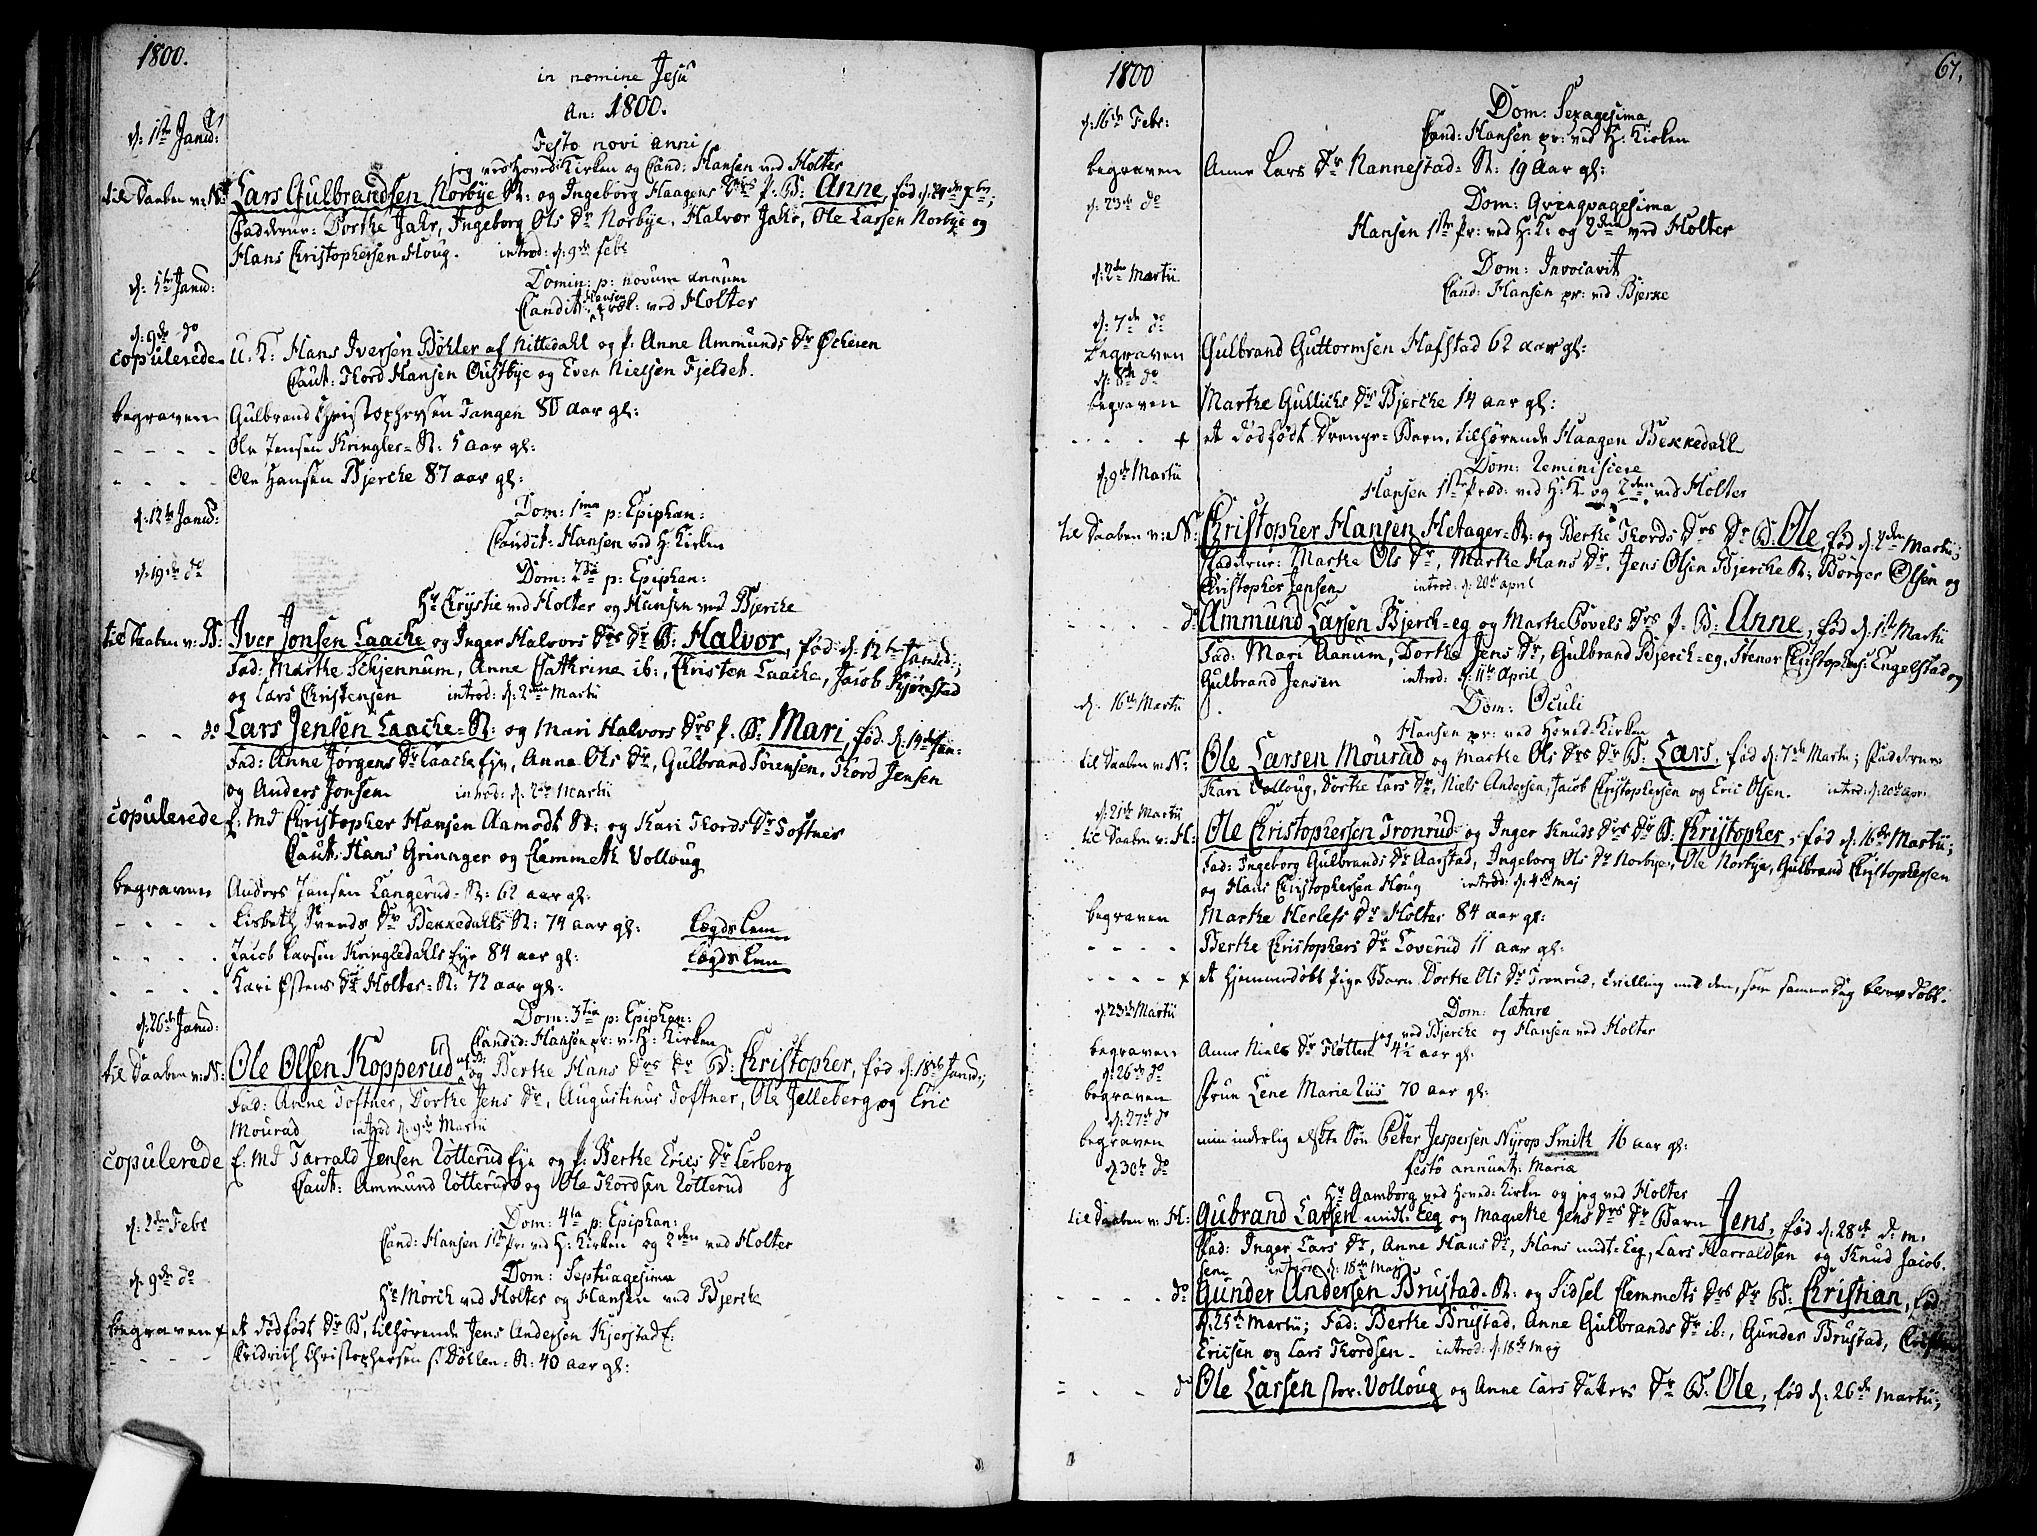 1800.
in nomine Jesu
An: 1800.
d: 1ste Janu:
Festo novi anni
jeg ved Hoved Kirken og Cand: Hansen ved Holter
til Daaben v: N: Lars Gulbrandsen Norbye og Ingeborg Haagens D: B: Anne, fød d: 29de
Fadderne: Dorthe Jahr, Ingeborg Ols Dr Norbye, Halvor Jahr, Ole Larsen Norbye og
Hans Christophersen Houg. introd: d: 9de Febr
d: 5te Janu:
Domin: p: novum annum
Candit: Hansen præd: ved Holter
d: 9de do
copulerede U. K: Hans Iversen Bøhler af Nittedahl og P: Anne Ammunds Dr Ockeren
Caut: Thord Hansen Oustbye og Even Nielsen Fjeldet.
begraven Gulbrand Christophersen Tangen 80 aar gl:
- - - - Ole Jensen Kringler 5 aar gl:
- - - - Ole Hansen Bjercke 87 aar gl:
d: 12te Janu:
Dom: 1ma p: Epiphan:
Candit: Hansen ved H: Kirken
d: 19de do
Dom: 2da p: Epiphan:
Hr Chrystie ved Holter og Hansen ved Bjercke
til Daaben v: B: Iver Jonsen Laache og Inger Halvors Drs Dr B: Halvor, fød: d: 12te Janu:;
Fad: Marthe Schjennum, Anne Cathrina ib:, Christen Laache, Jacob Kjønstad
og Lars Christensen introd: d: 2den Marti
- - - do Lars Jensen Laache og Mari Halvors Drs P. B: Mari, fød d: 14de Jan:
Fad: Anne Jørgens Dr Laache Eje, Anne Ols Dr, Gulbrand Sørensen, Thord Jensen
og Anders Jonsen introd: d: 2den Martii
copulerede E: Md Christopher Hansen Aamodt og Kari Thords Dr Toftner
Caut: Hans Grinager og Clemmeth Volloug
begraven Anders Jansen Langerud 62 aar gl:
- - - - Lisbeth Svends Dr Bekkedahls 74 aar gl: Lægdslem
- - - - Jacob Larsen Kringledahls Eje 84 aar gl: Lægdslem
- - - - Kari Østens Dr Holter 72 aar gl:
d: 26de Janu:
Dom: 3tia p: Epiphan:
Candid: Hansen pr: v: H: Kirken
til Daaben v: N: Ole Olsen Kopperud og Berthe Hans Drs Dr B: Christopher, fød d: 18de Janu:;
Fad: Anne Toftner, Dorthe Jens Dr, Augustinus Toftner, Ole Jelleberg og Eric
Mourud introd d: 9de Martii
copulerede E: Md Tarrald Jensen Rotterud Eje og P: Berthe Erics Dr Lerberg
Caut: Ammund Rotterud og Ole Thordsen Rotterud
d: 2den Febr
Dom: 4ta p: Epiphan:
Cand: Hansen 1ste Pr: ved H: Kirken og 2den ved Holter
d: 9de do
Dom: Septuagesima
Hr Mörch ved Holter og Hansen ved Bjercke
begraven et dødfødt Dr B, tilhørende Jens Andersen Kjerstad E:
- - - Fridrich Christophersen Döhlen 40 aar gl:
1800
67.
d: 16de Febr:
Dom: Sexagesima
Cand: Hansen pr: ved H: Kirken
begraven Anne Lars Dr Nannestad 19 Aar gl:
d: 23de do
Dom: Qvinqvagesima
Hansen 1ste Pr: ved H: K: og 2den ved Holter
d: 2den Martii
Dom: Invocavit
Cand: Hansen pr: ved Bjerke
d: 7de do
begraven Gulbrand Guttormsen Hafstad 62 aar gl:
d: 8de do
begraven Marthe Gullichs Dr Bjercke 14 aar gl:
- - - - et dødfødt Drenge-Barn, tilhørende Haagen Bekkedahl
d: 9de Martii
Dom: Reminiscere
Hansen 1ste Præd: ved H: K: og 2den ved Holter
til Daaben v: N: Christopher Hansen Hetager og Berthe Thords Drs Dr B: Ole, fød d: 2den Martii;
Fadderne: Marthe Ols Dr, Marthe Hans Dr, Jens Olsen Bjercke, Børger Olsen og
Christopher Jensen introd: d: 20de april
- - - - do Ammund Larsen Bjerck-eg og Marthe Povels Drs P. B: Anne, fød d: 1ste Martii
Fad: Mari Aanum, Dorthe Jens Dr, Gulbrand Bjerck-eg, Stenor Christophers: Engelstad og
Gulbrand Jensen introd: d: 11te April
d: 16de Martii
Dom: Oculi
Hansen pr: ved Hoved-Kirken
til Daaben v: N: Ole Larsen Mourud og Marthe Ols Drs Dr B: Lars, fød d: 7de Martii; Fadderne:
Kari Volloug, Dorthe Lars Dr, Niels Andersen, Jacob Christophersen og Eric Olsen. introd: d: 20de apr:
d: 21de Martii
til Daaben v: H: Ole Christophersen Tronrud og Inger Knuds Drs Dr B: Christopher, fød d: 16de Martii;
Fad: Ingeborg Gulbrands Dr Aarstad, Ingeborg Ols Dr Norbye, Ole Norbye, Gulbrand Christophersen
og Hans Christophersen Houg introd: d: 4de maj
begraven Marthe Herlofs Dr Holter 84 aar gl:
- - - - Berthe Christophers Dr Loverud 11 aar gl:
- - - - et hjemmedøbt Pige Barn Dorthe Ols Dr Tronrud, tvilling med den, som samme Dag blev døbt.
d: 23de Martii
Dom: Lætare
jeg ved Bjercke og Hansen ved Holter
begraven Anne Niels Dr Fløtten 4½ aar gl:
d: 26de do
begraven Frue Lene Marie Riis 70 aar gl:
d: 27de do
begraven min inderlig elskte Søn Peter Jespersen Nyrop Smith 16 aar gl:
d: 30te do
festo annunt: Maria
Hr Gamborg ved Hoved-Kirken og jeg ved Holter
til Daaben v: H: Gubrand Larsen midt-Eeg og Magrethe Jens Drs Dr Barn Jens, fød d: 28de d: m.
Fad: Inger Lars Dr, Anne Hans Dr, Hans midt-Eeg, Lars Harraldsen og Knud Jacob-
sen introd: d: 18de Maj
- - - - do Gunder Andersen Brustad og Sidsel Clemmets Drs Dr B: Christian, fød
d: 25de Martii; Fad: Berthe Brustad, Anne Gulbrands Dr ib:, Gunder Brustad, Christen
Ericsen og Lars Thordsen. introd: d: 18de Maj
- - - do Ole Larsen stor-Volloug og Anne Lars Datters Dr B: Ole, fød d: 26de Martii;